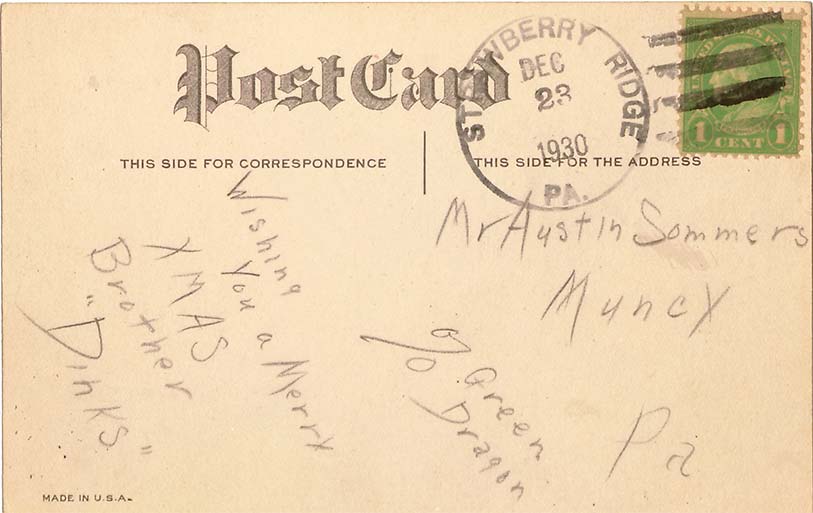 Post Card
STRAWBERRY RIDGE
DEC
23
1930
PA.
1 CENT 1
THIS SIDE FOR CORRESPONDENCE
THIS SIDE FOR THE ADDRESS
Wishing
You a Merry
XMAS
Brother
"Dinks"
Mr Austin Sommers
Muncy
℅ Green
Dragon
Pa
MADE IN U.S.A.